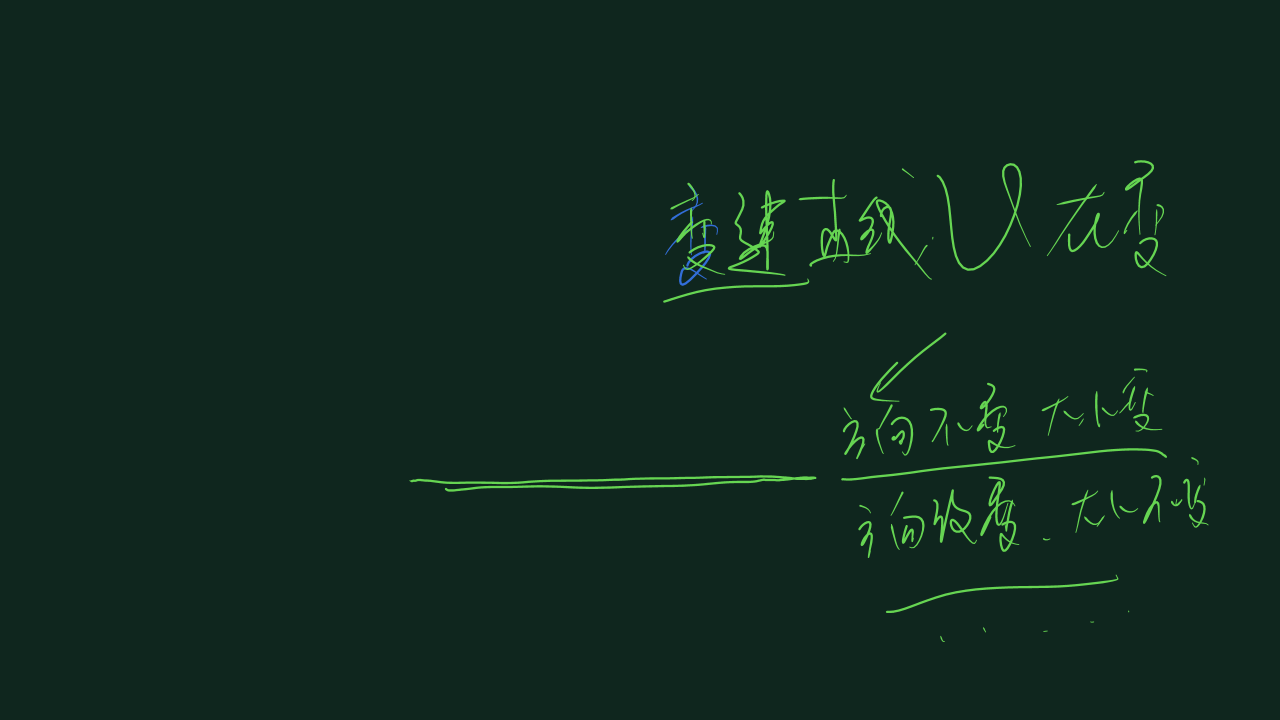 变速曲线,V在变
方向不变 大小变
方向改变.大小不变